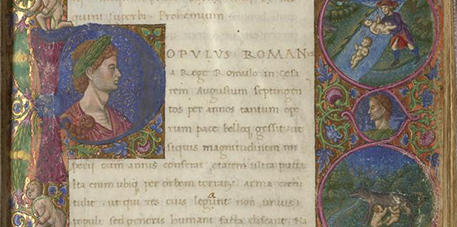 quini superbi Prohemium
POPULUS ROMAN
a Rege Romulo in Cesa
rem Augustum septingen
tos per annos tantum op
rum pace belloq gessit ut
siquis magnitudinem im
perii cum annis conferat etatem ultra putet
Ita enim ubiq per orbem terrarum arma circum
tulit ut qui res eius legunt non unius
populi sed generis humani facta